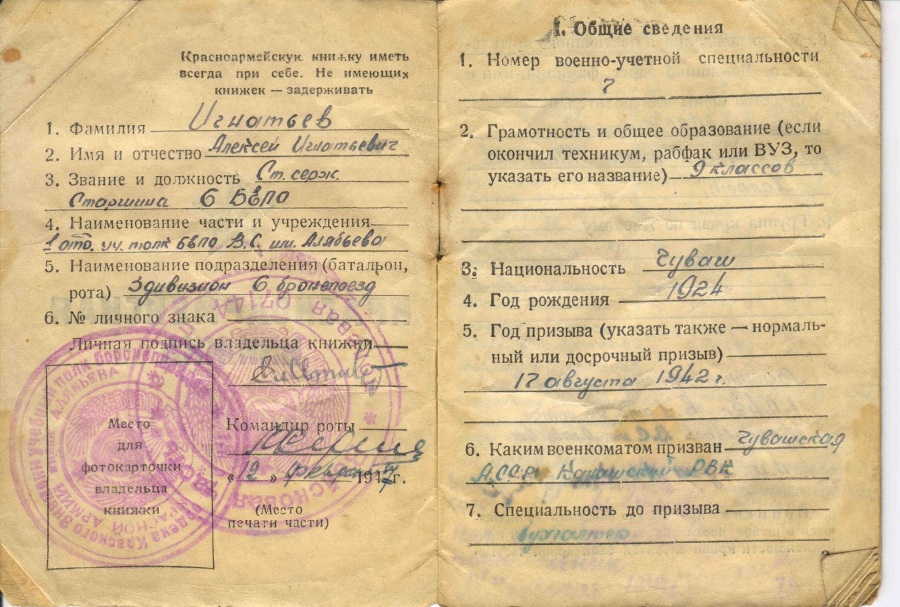 Красноармейскую книжку иметь
всегда при себе. Не имеющих
книжек — задерживать
1. Фамилия Игнатьев
2. Имя и отчество Алексей Игнатьевич
3. Звание и должность Ст. серж.
Старшина 6 БЕПО
4. Наименование части и учреждения
1 отд. уч. полк БЕПО В.С. им. Алябьева
5. Наименование подразделения (батальон,
рота) 3 дивизион 6 бронепоезд
6. № личного знака
Личная подпись владельца книжки
Командир роты
„12" февраля 1947г.
Место
для
фотокарточки
владельца
книжки
(Место
печати части)
I. Общие сведения
1. Номер военно-учетной специальности
7
2. Грамотность и общее образование (если
окончил техникум, рабфак или ВУЗ, то
указать его название) 9 классов
3. Национальность Чуваш
4. Год рождения 1924
5. Год призыва (указать также — нормаль-
ный или досрочный призыв)
17 августа 1942 г.
6. Каким военкоматом призван Чувашская
АССР Канашский РВК
7. Специальность до призыва
бухгалтер